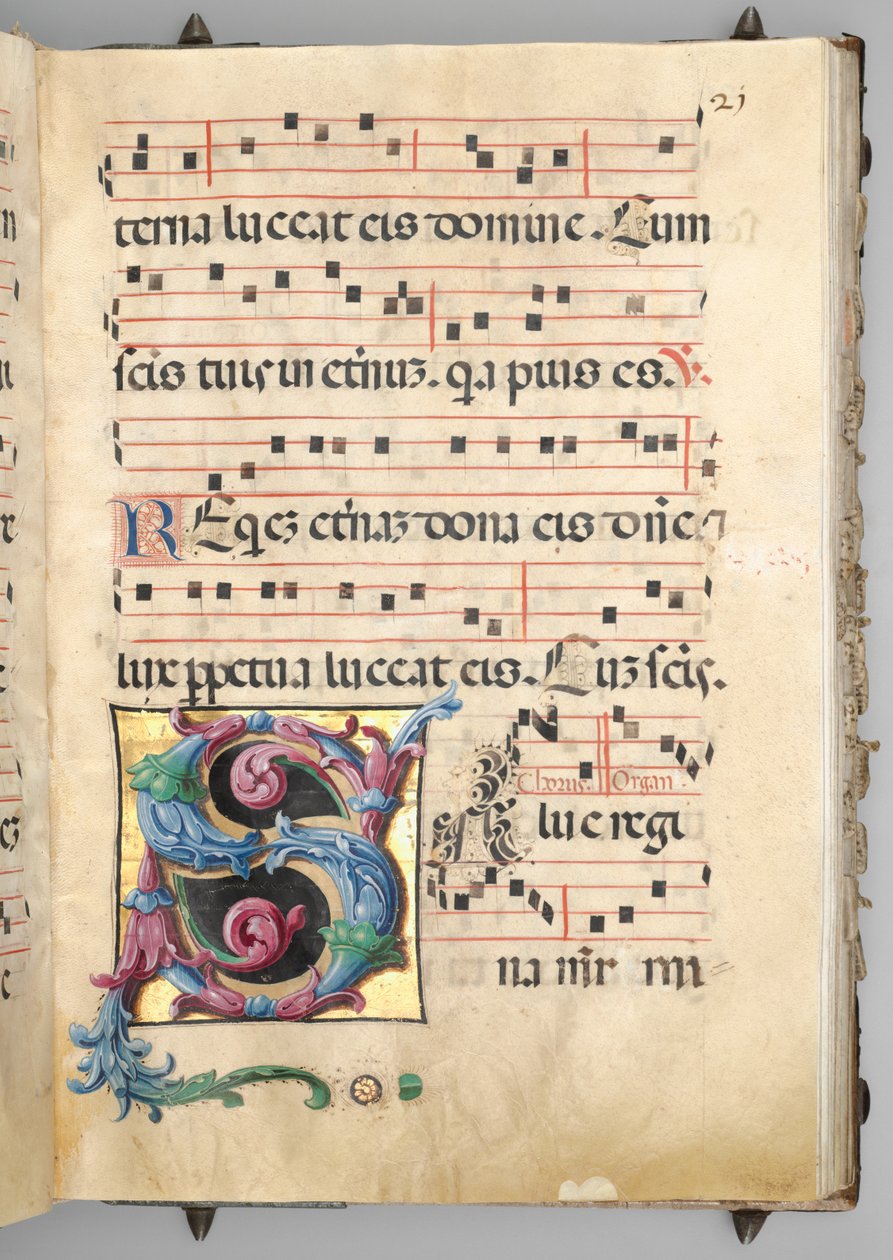 21
terna luceat eis domine. Cum
scis tuis in eternuz. qa pius es. V.
REqez eternaz dona eis dñe
lux ppetua luceat eis. Cuz scis.
Chorus. Organ
SAlue regi
na mir mi